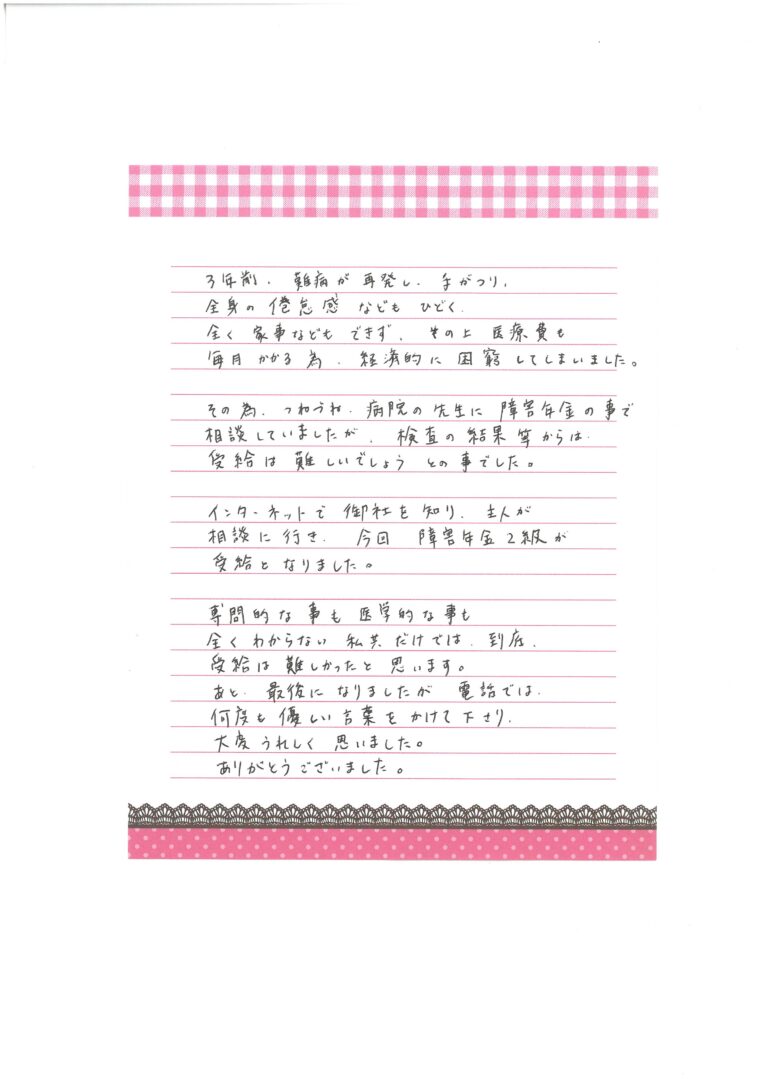 3年前、難病が再発し、手がつり、
全身の倦怠感などもひどく、
全く家事などもできず、その上医療費も
毎月かかる為、経済的に困窮してしまいました。
その為、つねづね、病院の先生に障害年金の事で
相談していましたが、検査の結果等からは、
受給は難しいでしょうとの事でした。
インターネットで御社を知り、主人が
相談に行き、今回障害年金2級が
受給となりました。
専門的な事も医学的な事も
全くわからない私共だけでは、到底、
受給は難しかったと思います。
あと、最後になりましたが電話では、
何度も優しい言葉をかけて下さり、
大変うれしく思いました。
ありがとうございました。